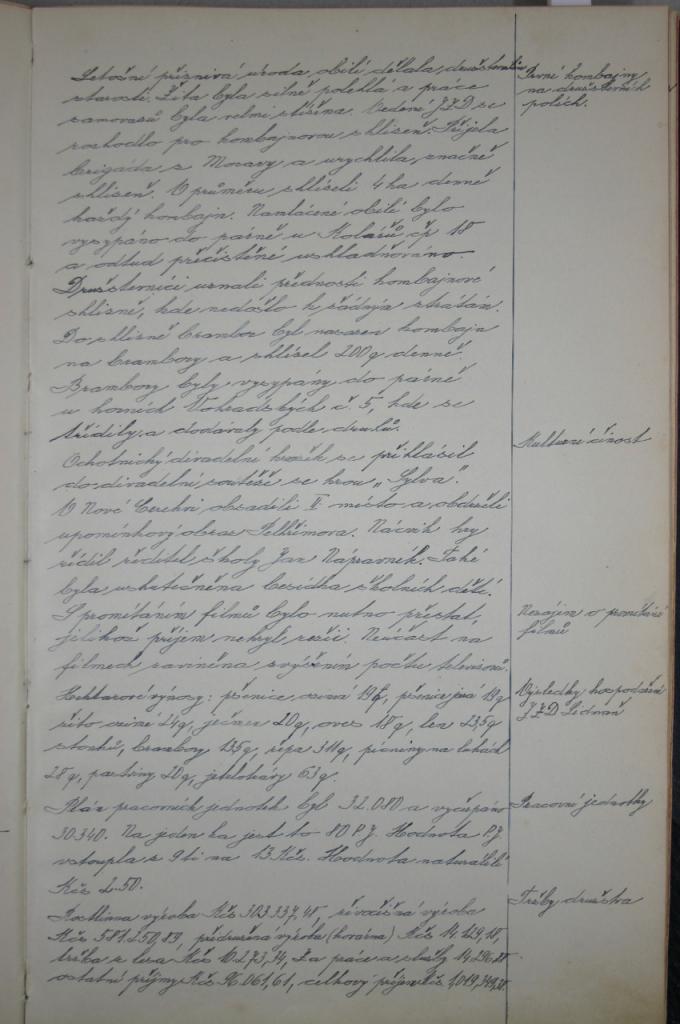 Letošní příznivá úroda obilí dělala družstevníkům
starosti. Žita byla silně polehlá a práce
samovazů byla velmi stížena. Vedení JZD se
rozhodlo pro kombajnovou sklizeň. Přijela
brigáda z Moravy a urychlila značně
sklizeň. V průměru sklízeli 4 ha denně
každý kombajn. Namlácené obilí bylo
vysypáno do pázně u Kolářů čp 18
a odtud přečištěné uskladňováno.
Družstevníci uznali přednosti kombajnové
sklizně, kde nedošlo k žádným ztrátám.
Do sklizně brambor byl nasazen kombajn
na brambory a sklízel 200 q denně.
Brambory byly vysypány do pázně
u horních Vohradských č. 5, kde se
třídily a dodávaly podle druhů.
Ochotnický divadelní kroužek se přihlásil
do divadelní soutěže se hrou „Sylva".
V Nové Cerekvi obsadili II místo a obdrželi
upomínkový obraz Pelhřimova. Nácvik hry
řídil ředitel školy Jan Nápravník. Také
byla uskutečněna besídka školních dětí.
S promítáním filmů bylo nutno přestat,
jelikož příjem nekryl režii. Neúčast na
filmech zaviněna zvýšením počtu televizorů.
Hektarové výnosy: pšenice ozimá 19 q, pšenice jará 19 q
žito ozimé 24 q, ječmen 20 q, oves 18 q, len 23,5 q
stonků, brambory 135 q, řepa 311 q, pícniny na lukách
28 q, pastviny 20 q, jetelotrávy 63 q.
Plán pracovních jednotek byl 32.080 a vyčerpáno
30.340. Na jeden ha jest to 80 P.J. Hodnota P.J.
vstoupla z 9ti na 13 Kčs. Hodnota naturálií
Kčs 2.50.
Rostlinná výroba Kčs 303.337,48, živočišná výroba
Kčs 581.250,89, přidružená výroba (kovárna) Kčs 14.129,18,
tržba z lesa Kčs 10.273,34, za práce a služby 14.296,88
ostatní příjmy Kčs 96.061,61, celkový příjem Kčs 1,019.349,38.
První kombajny
na družstevních
polích.
Kulturní činost
Nezájem o promítání
filmů
Výsledky hospodaření
JZD Lidmaň
Pracovní jednotky
Tržby družstva